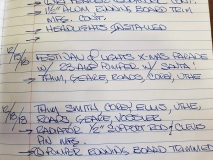 1/2" ALUM RUNNING BOARD TRIM
MFG. CONT.
→ HEADLIGHTS INSTALLED
12/6/18 → FESTIVAL OF LIGHTS X-MAS PARADE
W/ SEAG PUMPER W/ SANTA
- THUM, GEARE, ROADS, COREY, UTHE
12/8/18 → THUM, SMITH, COREY, ELLIS, UTHE,
ROADS, GEARE, VOORHEES
→ RADIATOR 1/2" SUPPORT ROD & CLEVIS
PIN MFG.
→ PUMPER RUNNING BOARD TRIM